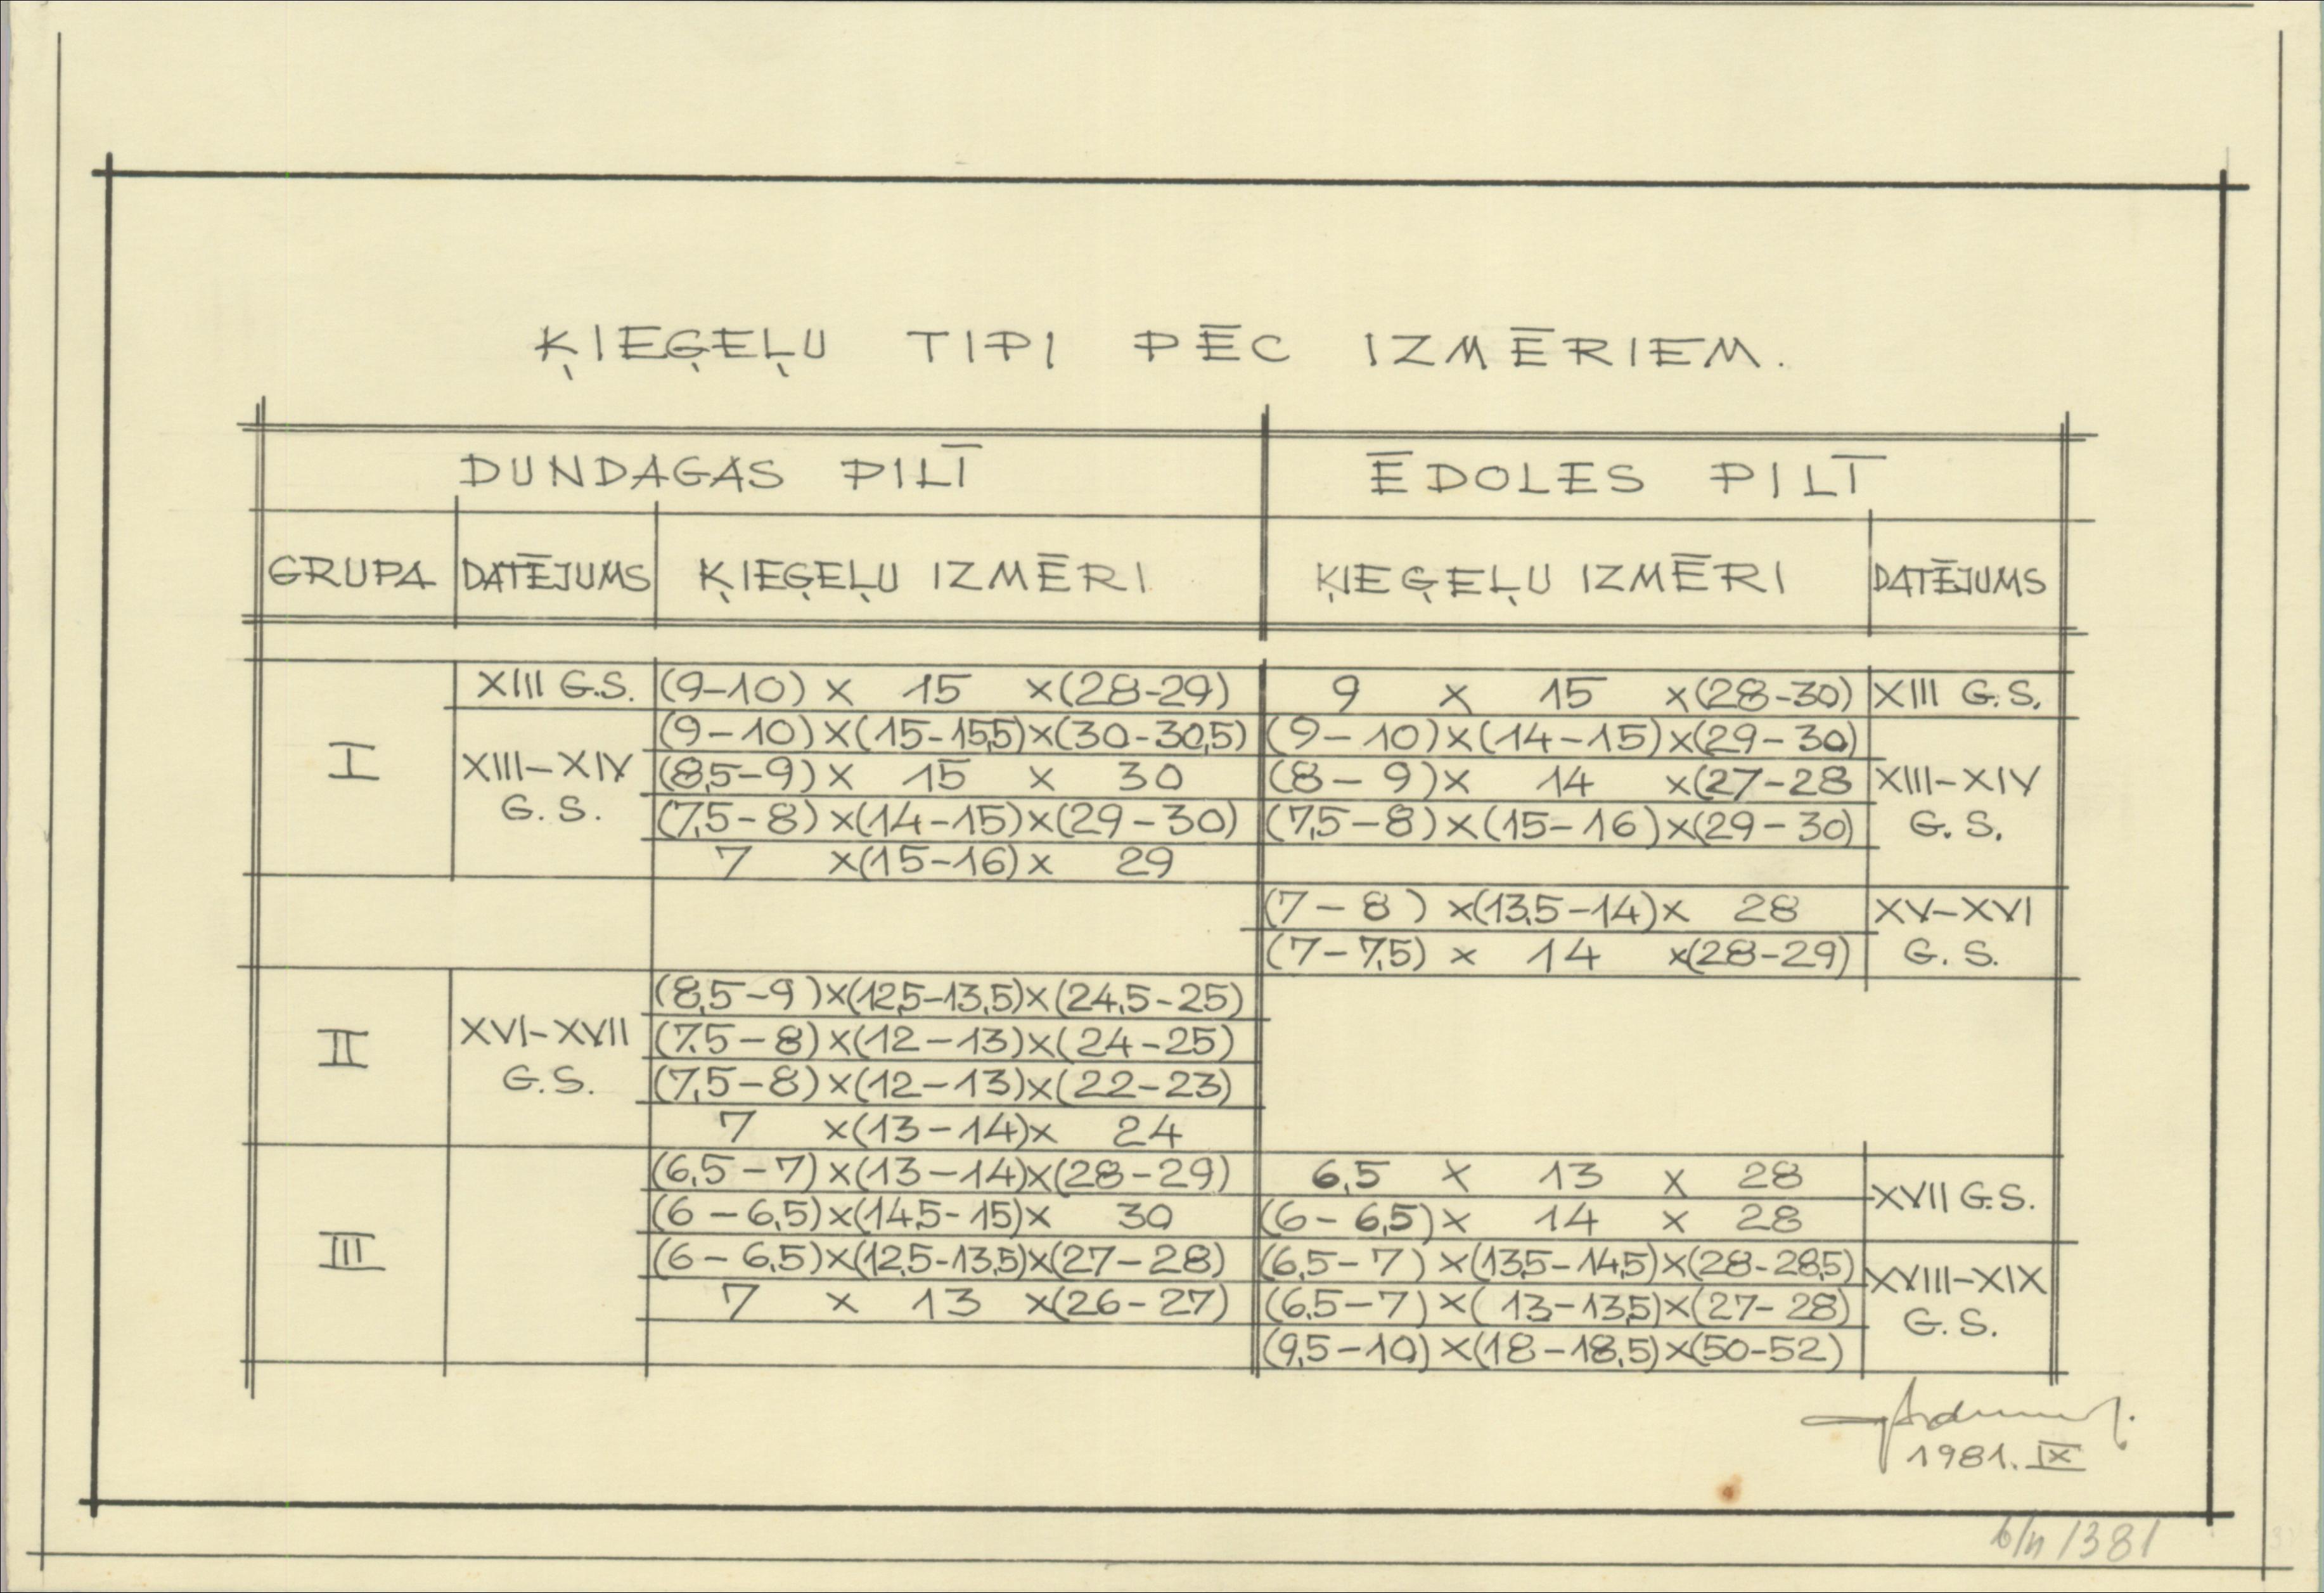 ĶIEĢEĻU TIPI PĒC IZMĒRIEM.
DUNDAGAS PILĪ ĒDOLES PILĪ
GRUPA DATĒJUMS ĶIEĢEĻU IZMĒRI ĶIEĢEĻU IZMĒRI DATĒJUMS
XIII G.S. (9-10) x 15 x (28-29) 9 x 15 x (28-30) XIII G.S.
(9-10) x (15-15,5) x (30-30,5) (9-10) x (14-15) x (29-30)
I XIII-XIV (8,5-9) x 15 x 30 (8-9) x 14 x (27-28 XIII-XIV
G.S. (7,5-8) x (14-15) x (29-30) (7,5-8) x (15-16) x (29-30) G.S.
7 x (15-16) x 29
(7-8) x (13,5-14) x 28 XV-XVI
(7-7,5) x 14 x (28-29) G.S.
(8,5-9) x (12,5-13,5) x (24,5-25)
II XVI-XVII (7,5-8) x (12-13) x (24-25)
G.S. (7,5-8) x (12-13) x (22-23)
7 x (13-14) x 24
(6,5-7) x (13-14) x (28-29) 6,5 x 13 x 28 XVII G.S.
(6-6,5) x (14,5-15) x 30 (6-6,5) x 14 x 28
III (6-6,5) x (12,5-13,5) x (27-28) (6,5-7) x (13,5-14,5) x (28-28,5) XVIII-XIX
7 x 13 x (26-27) (6,5-7) x (13-13,5) x (27-28) G.S.
(9,5-10) x (18-18,5) x (50-52)
1981. IX
b/n 1381